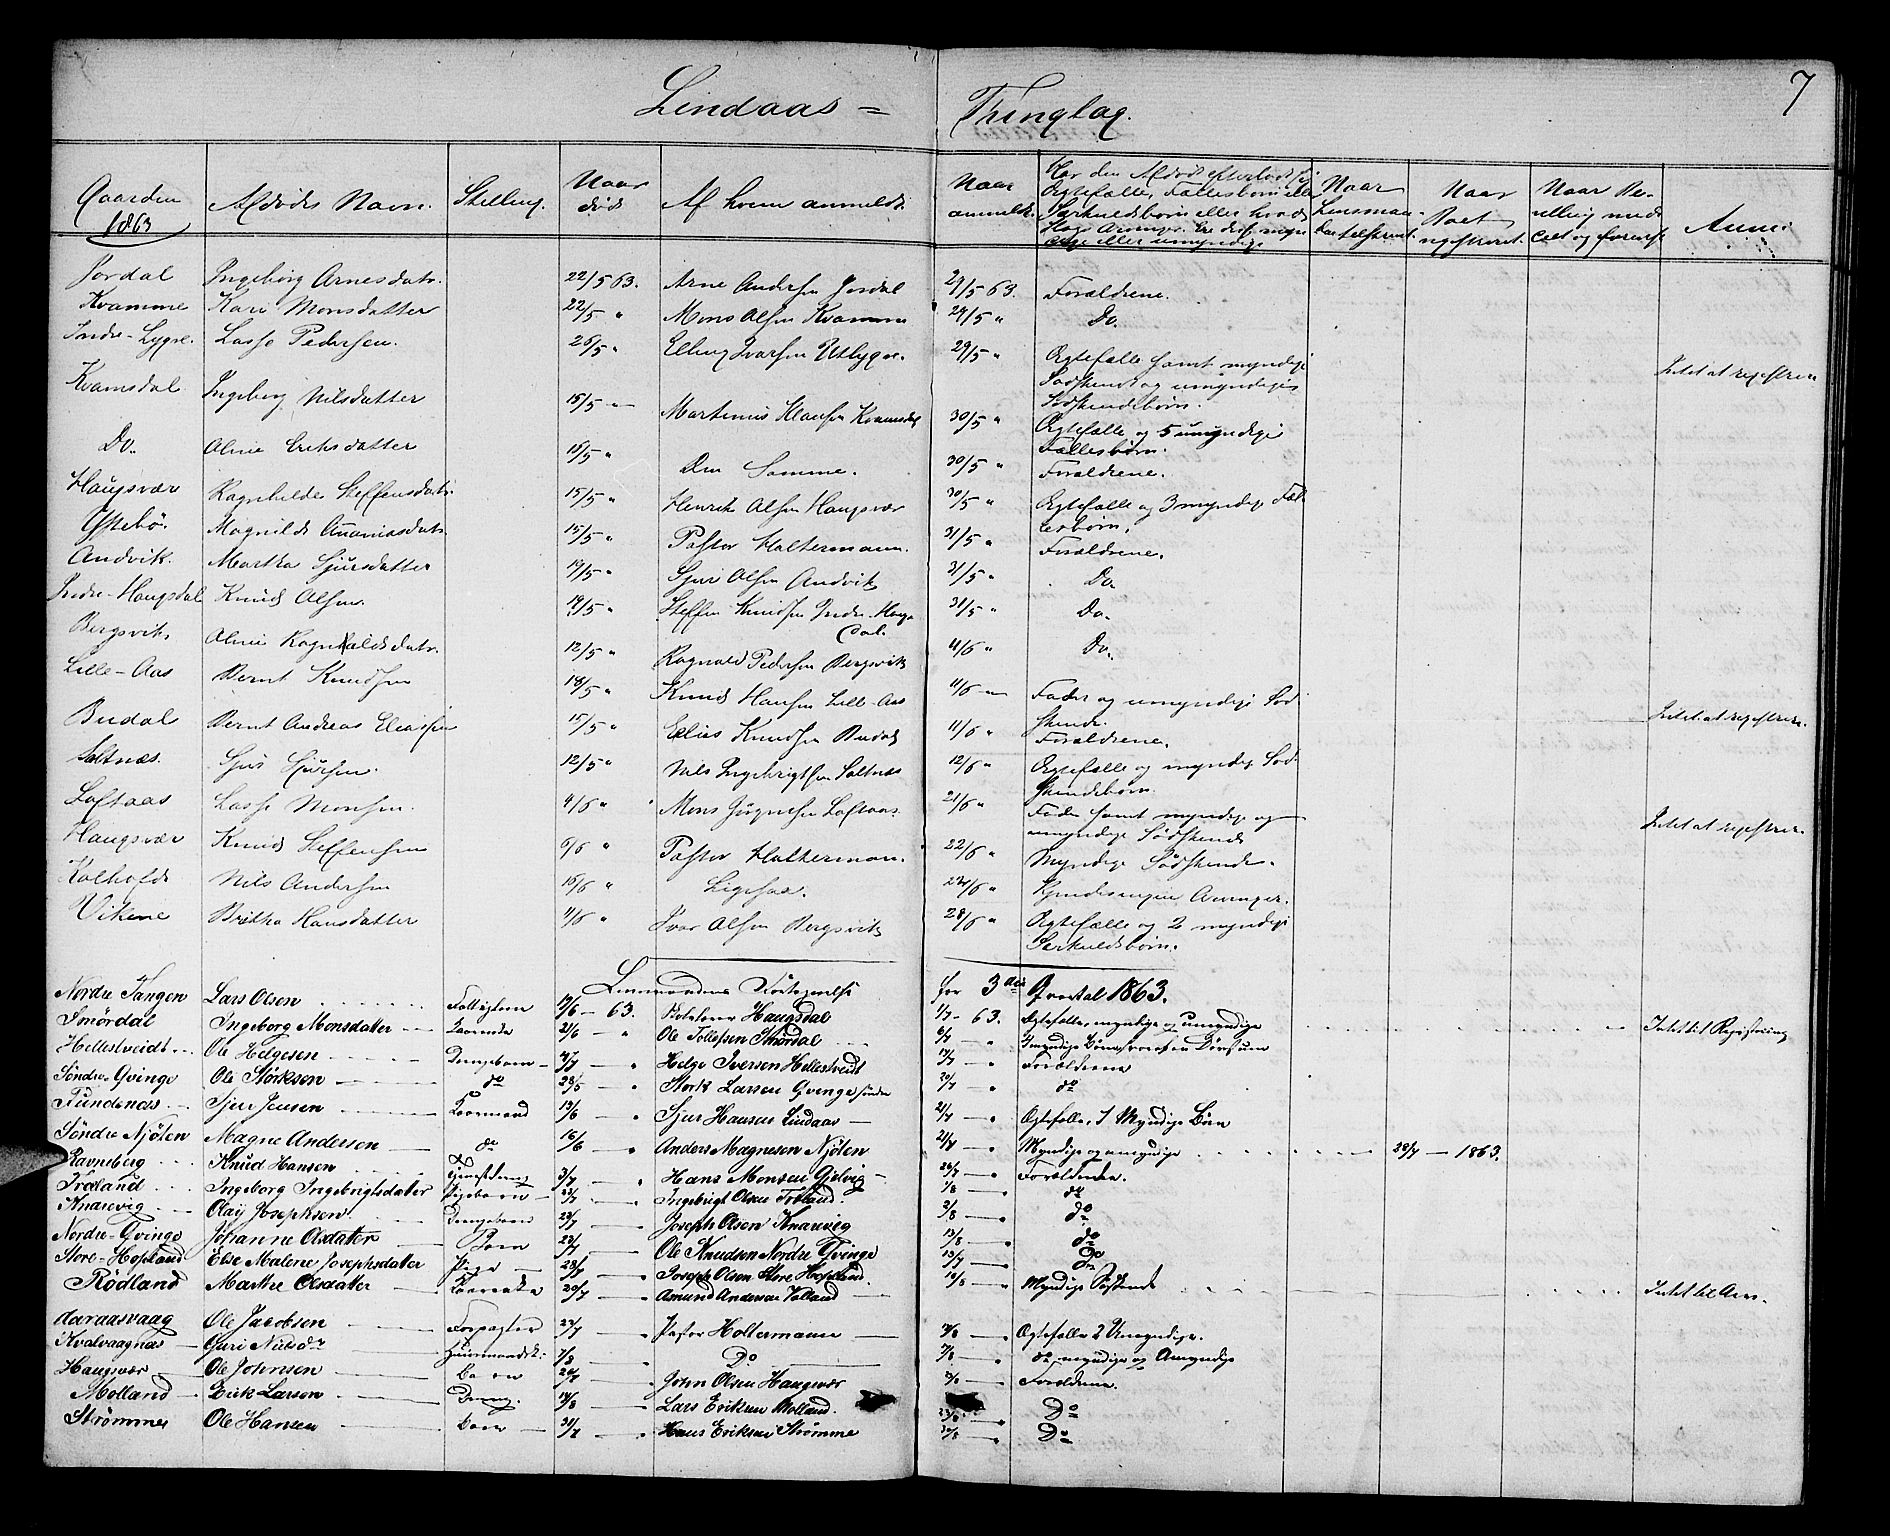 7
Lindaas = Thinglag.
Gaarden 1863 | Afdødes Navn. | Stilling. | Naar død | Af hvem anmeldt. | Naar anmeldt. | Har den Afdøde efterladt sig Egtefælle, Fællesbørn eller Særkuldsbørn eller hvad Slags Arvinger. Ere disse myndige eller umyndige | Naar Lensman | Naar registreret. | Naar | Anm:
Jordal | Ingeborg Arnesdatr. | 22/5 63. | Arne Andersen Jordal | 29/5 63. | Forældrene.
Kvamme | Kari Monsdatter | 22/5 " | Mons Olsen Kvamme | 29/5 " | Do.
Indre-Lygre. | Lasse Pedersen. | 26/5 " | Elling Ivarsen Utlygre. | 29/5 " | Egtefælle samt myndige Sødskende og umyndige Sødskendebørn. | Intet at registrere
Kvamsdal | Ingeborg Nilsdatter | 15/5 " | Martinus Klausen Kvamsdal | 30/5 " | Egtefælle og 5 umyndige Fællesbørn.
Do. | Oline Eriksdatter | 16/5 " | Den Samme. | 30/5 " | Forældrene.
Haugsvær | Ragnhilde Steffensdatr. | 15/5 " | Henrik Olsen Haugsvær | 30/5 " | Egtefælle og 3 myndige Fællesbørn.
Ystebø. | Magnilde Ananiasdatr. | 15/5 " | Pastor Haltermann. | 31/5 " | Forældrene.
Andvik. | Martha Sjursdatter | 19/5 " | Sjur Olsen Andvik | 31/5 " | Do.
Indre-Haugsdal | Knud Olsen. | 19/5 " | Steffen Knudsen Indre-Haugsdal. | 31/5 " | Do.
Bergsvik, | Oline Ragnvaldsdatr. | 12/5 " | Ragnvald Pedersen Bergsvik | 11/6 " | Do.
Lille-Aas | Bernt Knudsen | 18/5 " | Knud Hansen Lille-Aas | 11/6 " | Fader og umyndige Sødskende. | Intet at registrere.
Budal | Bernt Andreas Eliassen | 15/5 " | Elias Knudsen Budal | 11/6 " | Forældrene.
Saltnæs. | Sjur Sjursen. | 12/5 " | Nils Ingebrigtsen Saltnæs | 12/6 " | Egtefælle og myndige Sødskendebørn.
Loftaas | Lasse Monsen. | 4/6 " | Mons Jørgensen Loftaas. | 21/6 " | Fader samt myndige og umyndige Sødskende | Intet at registrere.
Haugsvær | Knud Steffensen | 6/6 " | Pastor Halterman. | 22/6 " | Myndige Sødskende.
Nils Andersen | 16/6 " | Ligesaa. | 22/6 " | Arvinger.
Vikene | Britha Hansdatter | 11/6 " | Ivar Olsen Bergsvik | 28/6 " | Egtefælle og 2 myndige Særkuldsbørn.
Lensmandens Fortegnelse for 3die Qvartal 1863.
Nordre Tangen | Lars Olsen | 19/6 - 63. | Haugsdal | 1/7 - 63. | Egtefælle, myndige og umyndige | Intet til Registrering
Smørdal | Ingeborg Monsdatter | Kaarenke | 21/6 " | Ole Tollefsen Smørdal
Hellestveidt | Ole Helgesen | Drengebarn | Helge Iversen Hellestveidt | Forældrene
Søndre Qvinge | Ole Størksen | do | 28/5 " | Størk Larsen Qvinge søndre | 20/7 " | do
Fundenæs | Sjur Jensen | Kaarmand | 13/6 " | Sjur Hansen Lindaas | 21/7 " | Egtefælle, 7 Myndige Børn
Søndre Njøten | Magne Andersen | do | 16/6 " | Anders Magnesen Njøten | 21/7 " | Myndige og umyndige | 28/7 - 1863.
Ravneberg | Knud Hansen | 3/7 " | Hans Monsen Gjelvig | 26/7 " | Forældrene.
Træland | Ingeborg Ingebrigtsdatter | Pigebarn | 23/7 " | Ingebrigt Olsen Træland | 1/8 " | do
Knarevig | Olai Josephsen | Drengebarn | 23/7 " | Joseph Olsen Knarevig | 2/8 " | do
Nordre-Qvinge | Johanne Olsdatter | Barn | 23/7 " | Ole Knudsen Nordre Qvinge | 13/8 " | do
Store-Hopland | Else Malene Josephsdatter | Pige | 28/7 " | Joseph Olsen Store Hopland. | 13/7 " | Do
Rødland | Marthe Olsdatter | Kaarenke | 20/7 " | Amund Andersen Valland | 16/8 " | Myndige Søskende | Intet til Arv.
Aaraasvaag | Ole Jacobsen | Forpagter | 23/7 " | Pastor Holtermann | Egtefælle 2 Umyndige.
Kvalvaagnæs | Guri Nilsdr | Huusmandsk. | 7/8 " | Do | do myndige og Umyndige
Haugsvær | Ole Johnsen | Barn | 24/7 " | John Olsen Haugsvær | Forældrene.
Molland | Erik Larsen | Dreng | 14/8 " | Lars Eriksen Molland. | 23/8 " | Do
Strømme | Ole Hansen | Barn | 31/7 " | Hans Eriksen Strømme | 30/8 " | Do